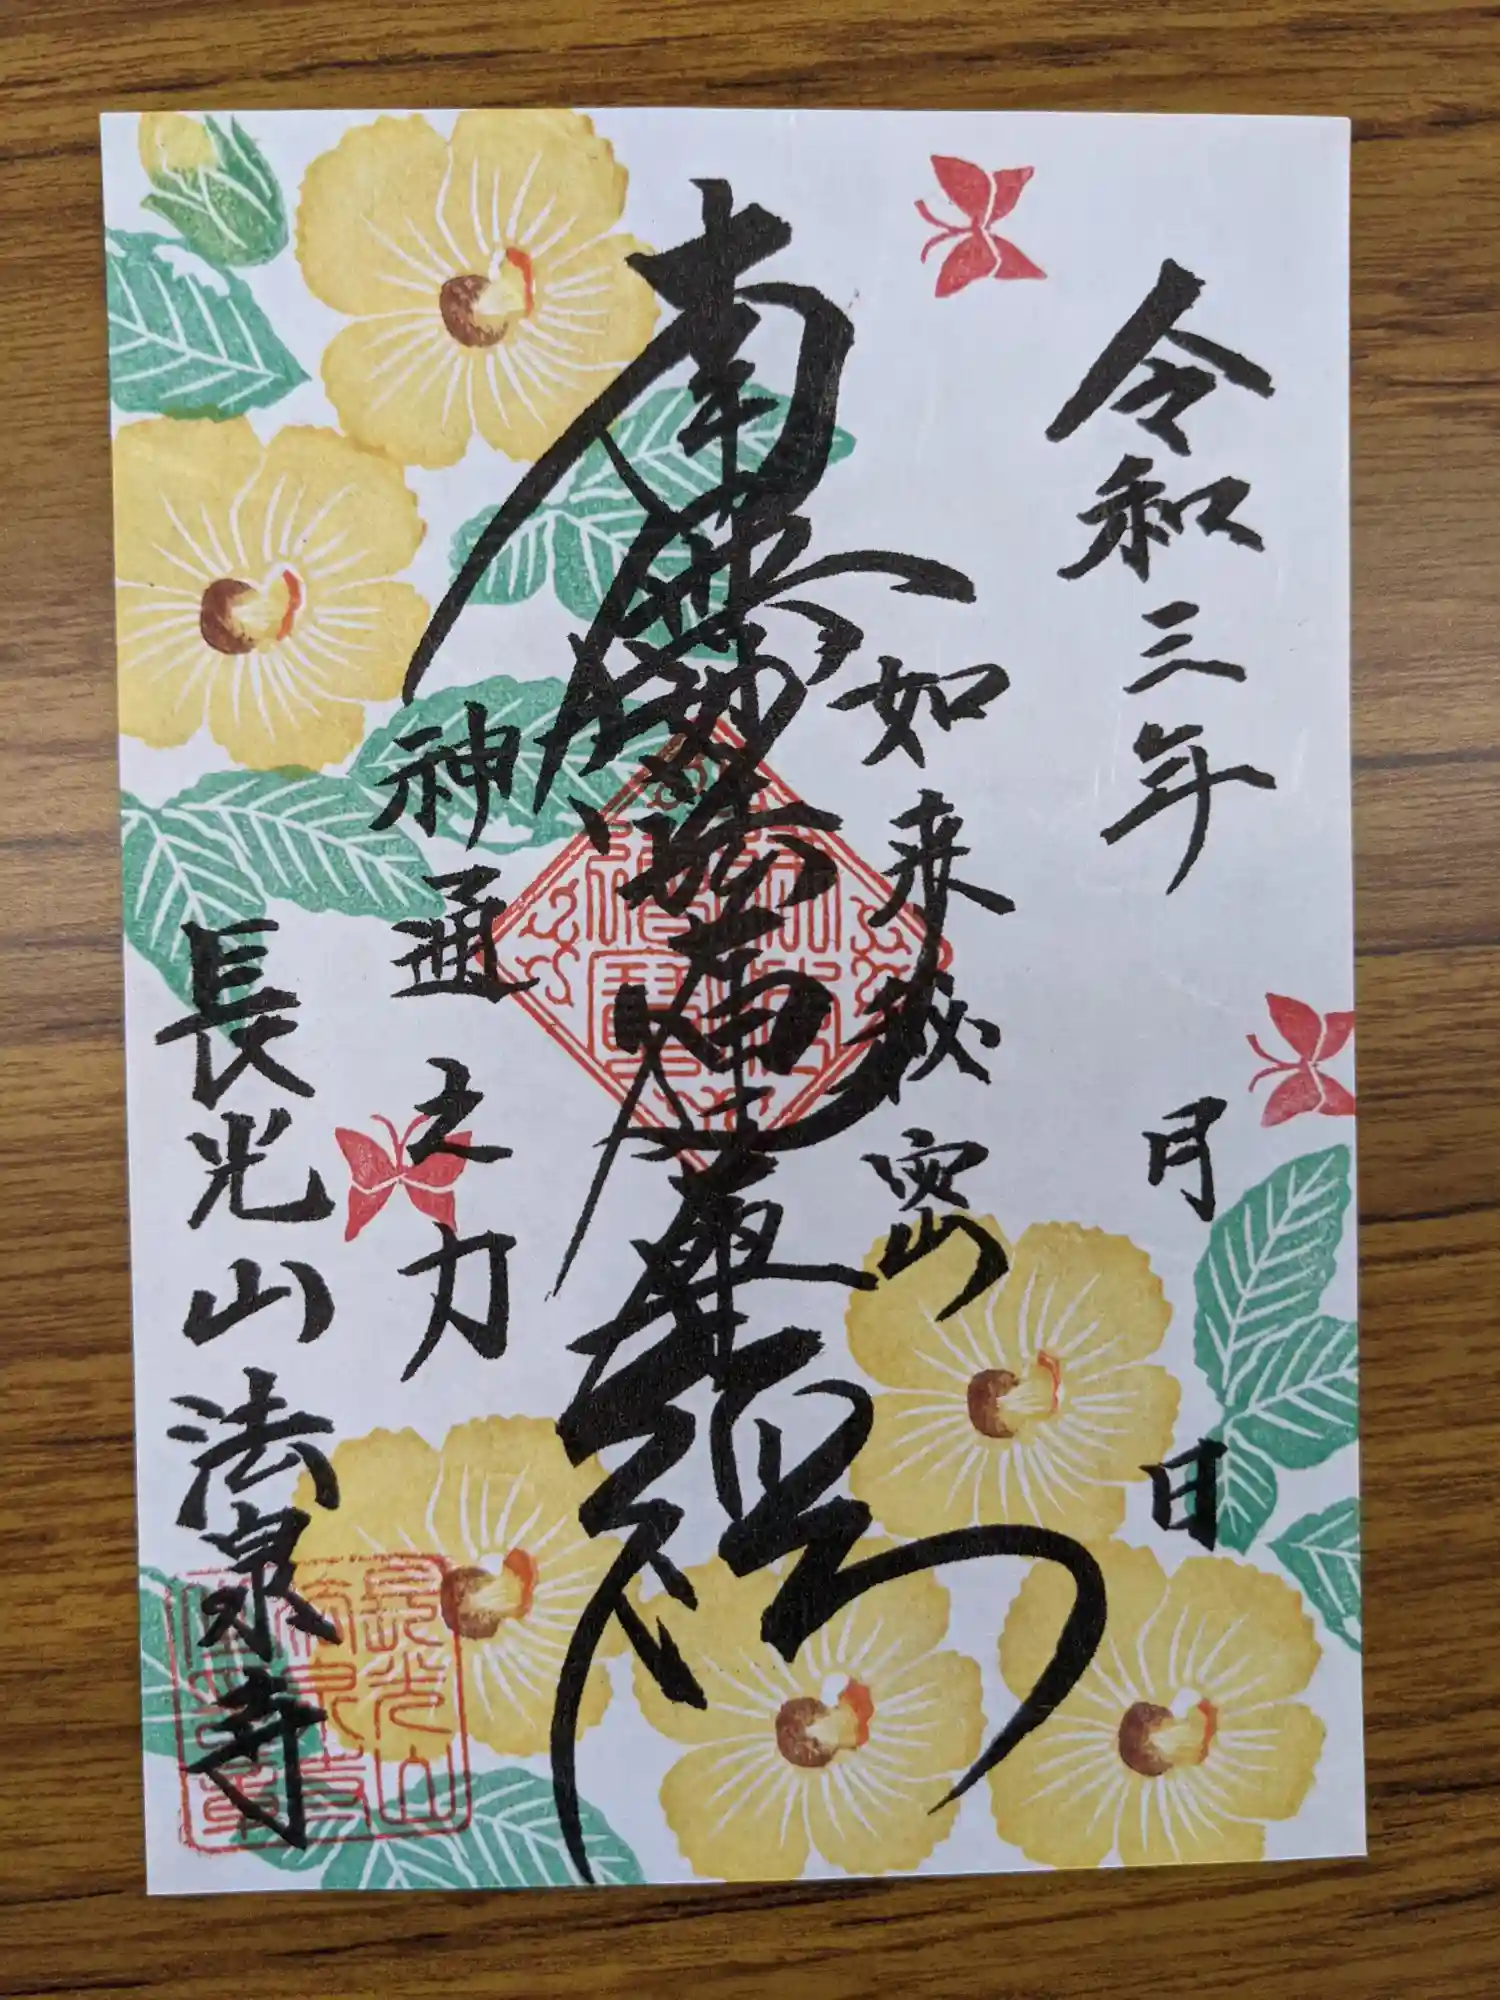 令和三年 月 日
如来秘密
南無妙法蓮華経
神通之力
長光山法泉寺
長光山
法泉寺